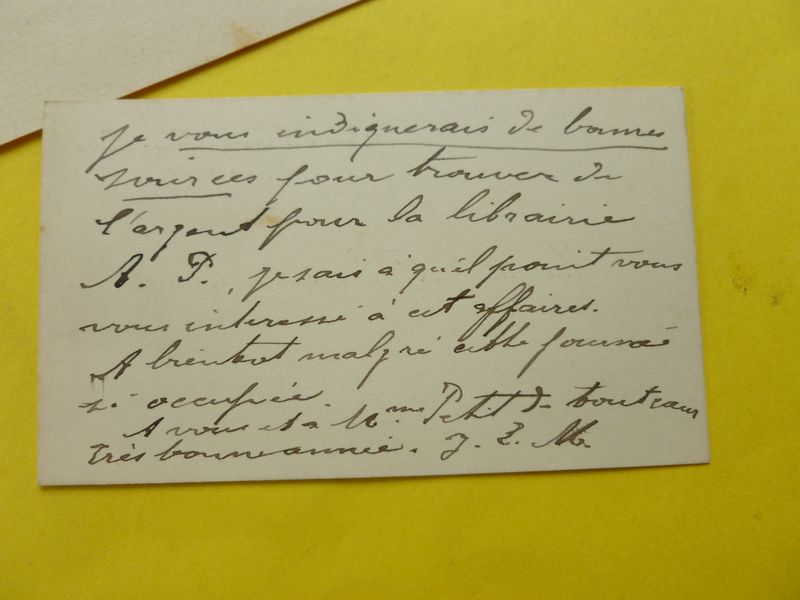 je vous indignerais de bonnes
soirées pour trouver de
l'argent pour la librairie
A. P., je sais à quel point vous
vous interessé à cet affaires.
A bientot malgré cette journée
si occupée.
A vous et à Mme Petit de tout cœur
très bonne année. J. E. M.